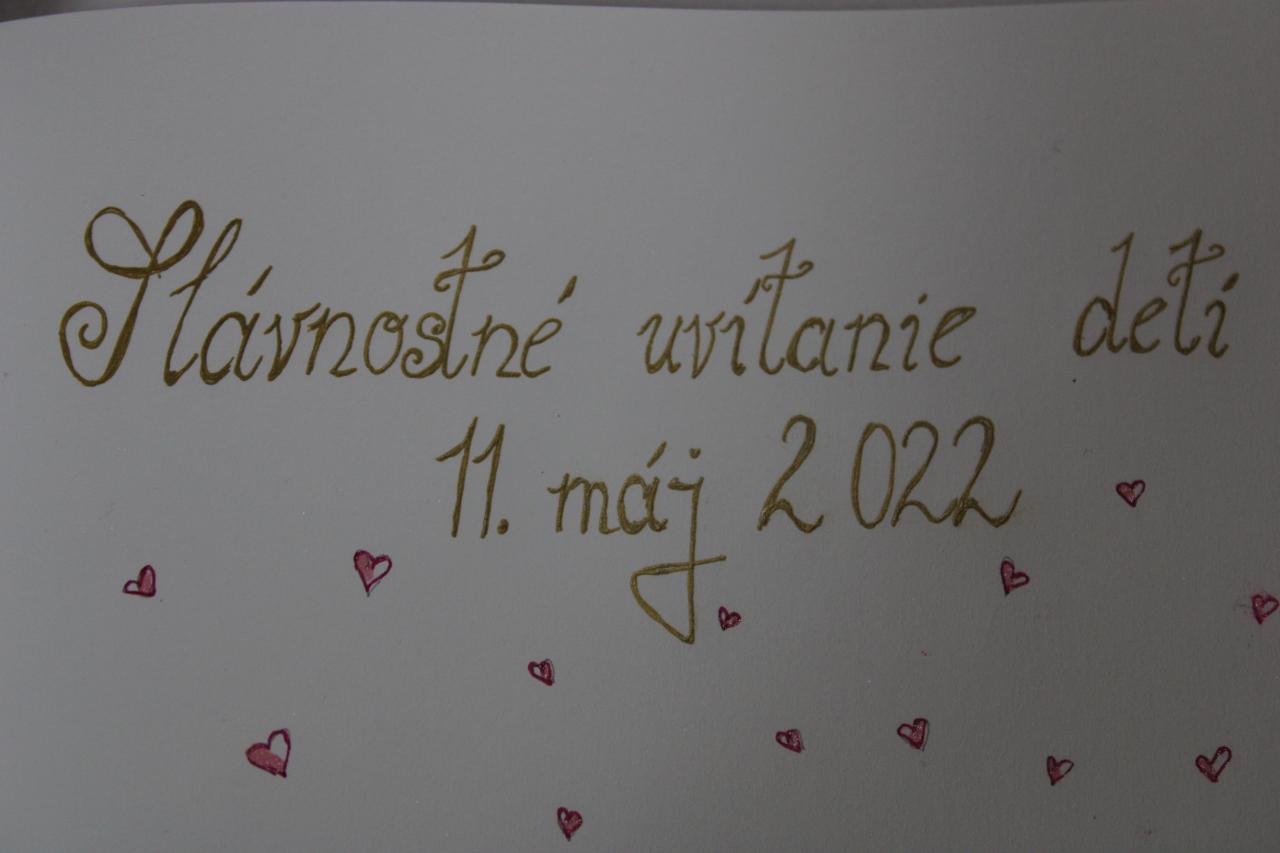 Slávnostné uvítanie detí
11. máj 2022